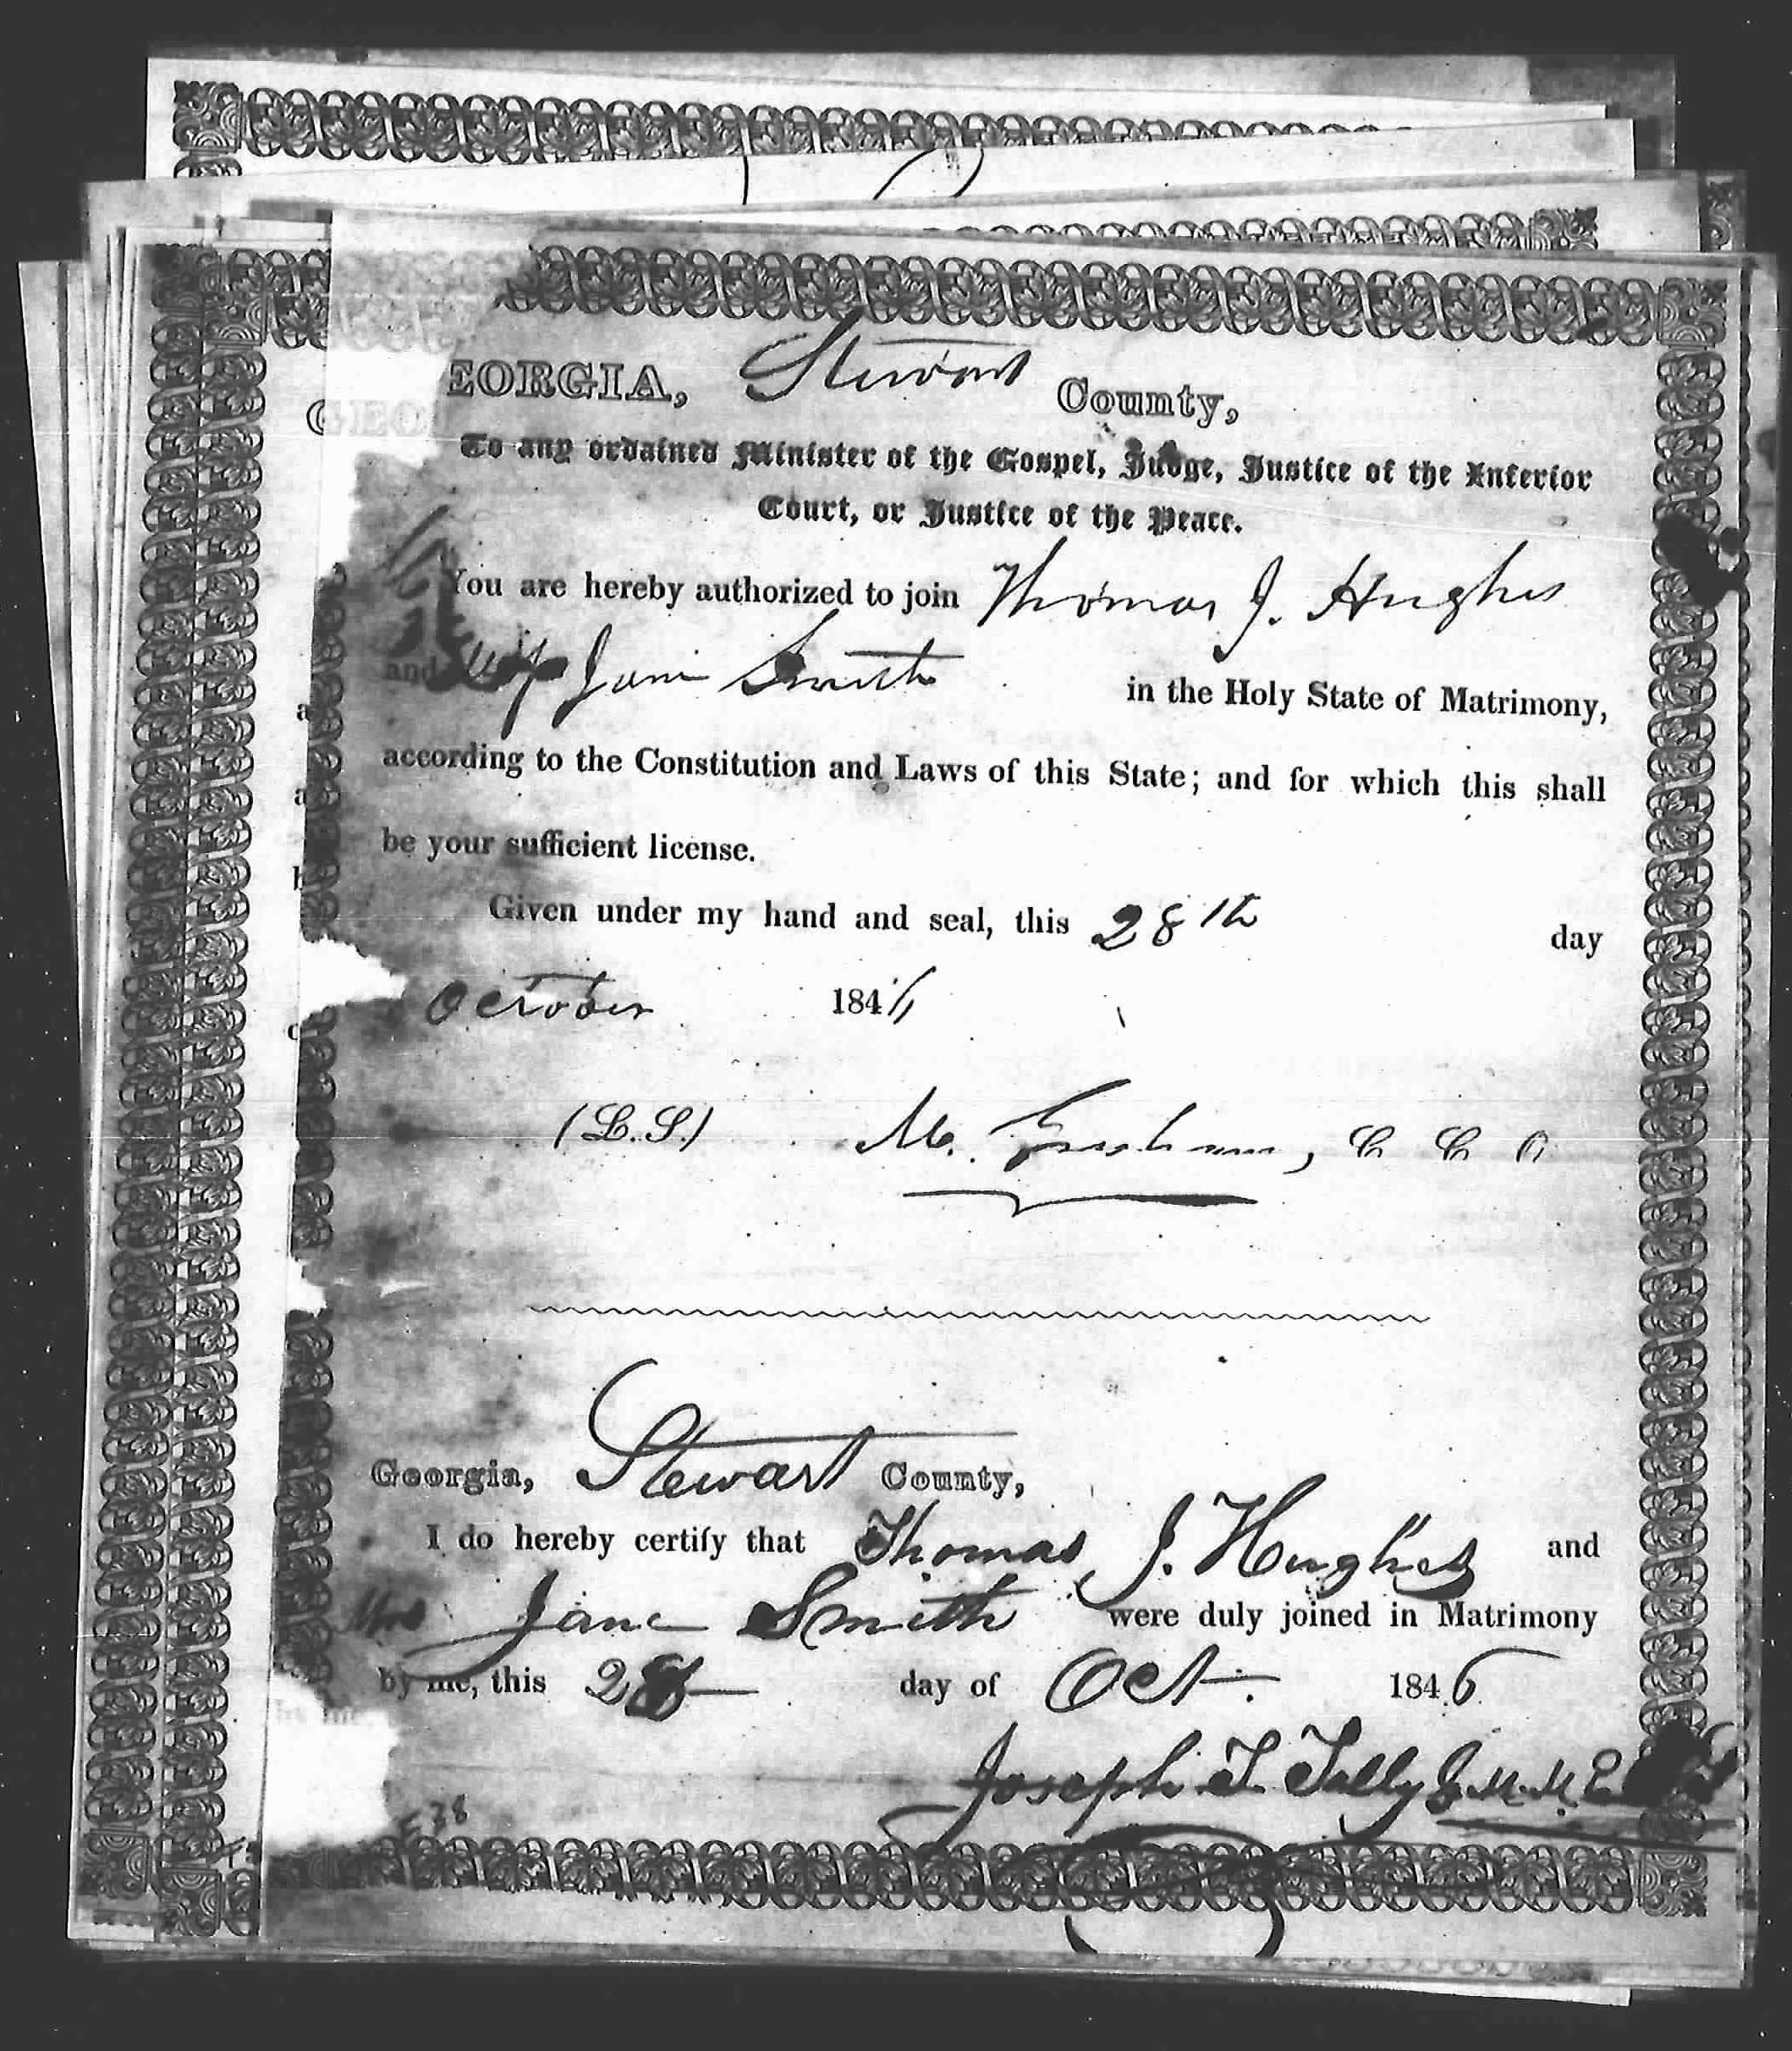 EORGIA, Stewart County,
To any ordained Minister of the Gospel, Judge, Justice of the Inferior
Court, or Justice of the Peace.
You are hereby authorized to join Thomas J. Hughes
and Jane Smith in the Holy State of Matrimony,
according to the Constitution and Laws of this State; and for which this shall
be your sufficient license.
Given under my hand and seal, this 28th day
October 1846
(L.S.) M. Gresham, C C O
Georgia, Stewart County,
I do hereby certify that Thomas J. Hughes and
Mrs Jane Smith were duly joined in Matrimony
by me, this 28 day of Oct. 1846
Joseph T. Tally
E38